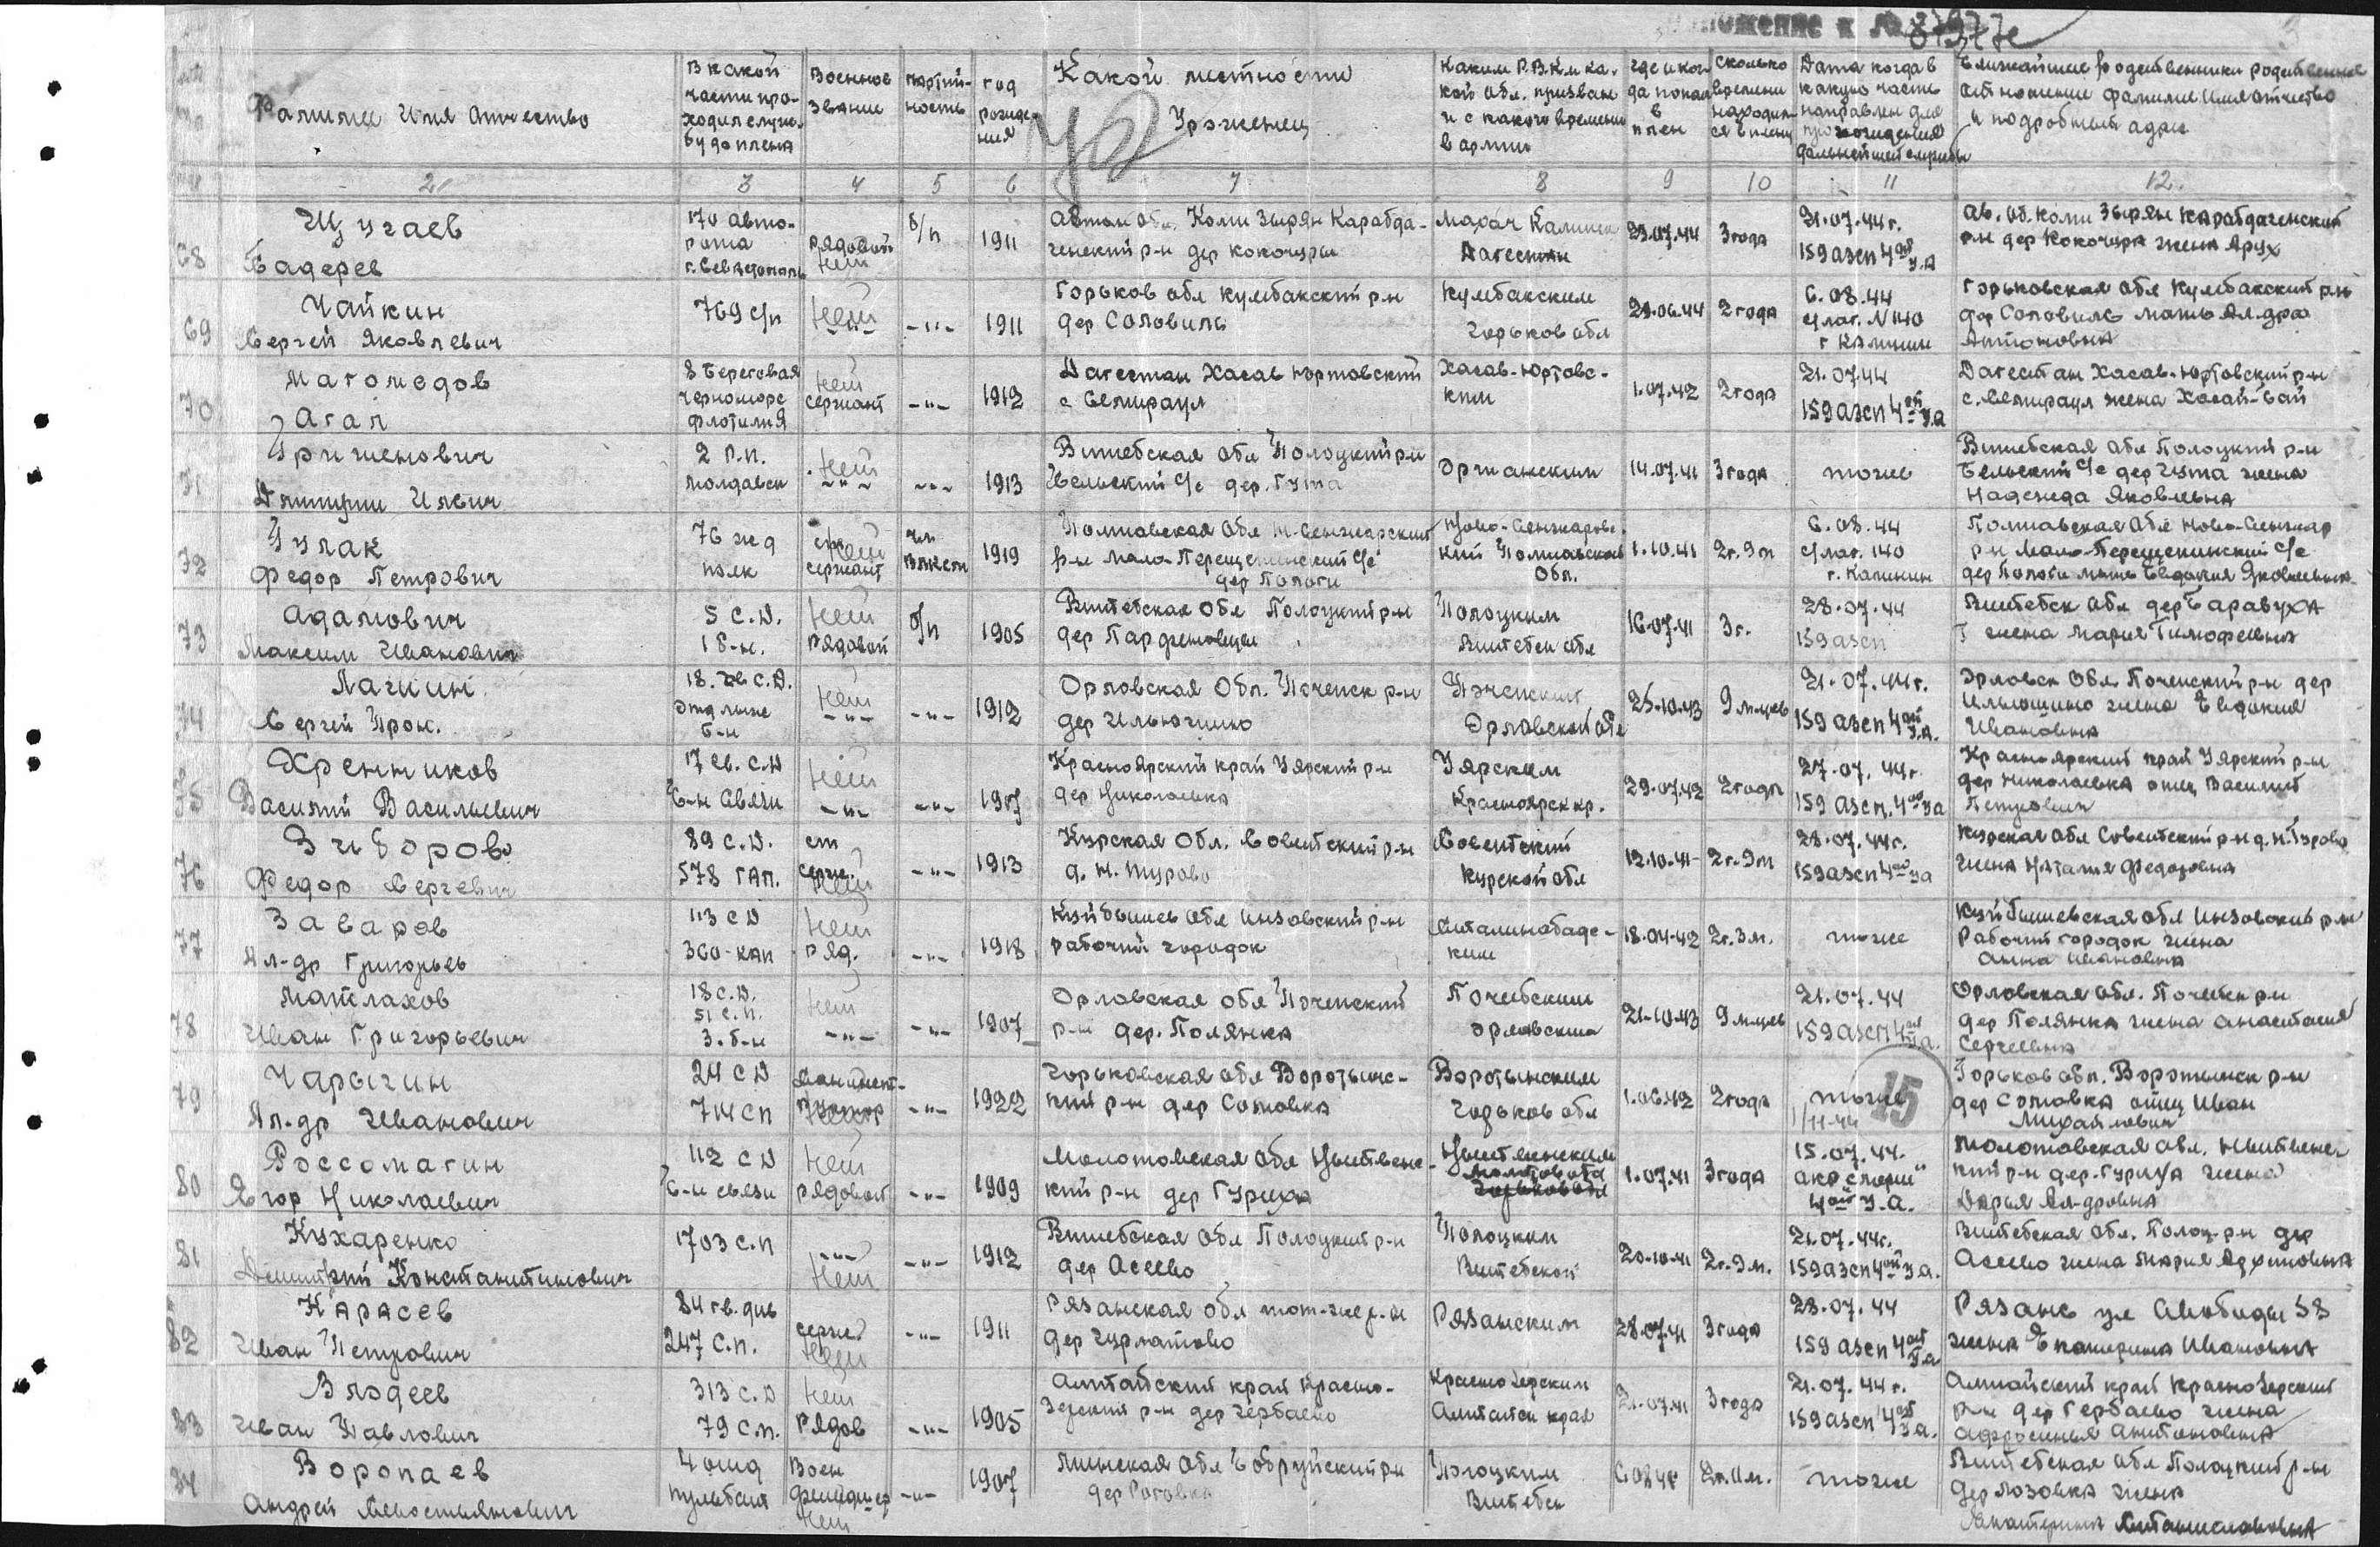 ложение к № 87977с
Фамилие Имя Отчество
В какой части проходил службу до плена
Военное звание
партийность
год рождения
Какой местности Уроженец
Каким Р.В.К. и какой обл. призван и с какого времени в армии
где и когда попал в плен
Сколько времени находился в плену
Дата когда в какую часть направлен для прохождения дальнейшей службы
Ближайшие родственники родственное отношение фамилие имя отчество и подробный адрес
2 3 4 5 6 7 8 9 10 11 12.
68 Бадерев
170 авторота г. Севастополь
рядовой Нет
б/п
1911
Коми Зырян
ченский р-н дер Кокочуры
Дагестан
29.07.44
3 года
21.07.44 г.
159 азсп 4ой У.А
р-н дер Кокочура жена Арух
69 Чайкин
Сергей Яковлевич
769 с/п
Нет
-"-
1911
Горьков обл Кулебакский р-н
дер Соловили
Кулебакским
Горьков обл
29.06.44
2 года
6.08.44
с/лаг. N 140
г Калинин
Горьковская обл Кулебакский р-н
дер Соловиле мать Ал-дра
Антоновна
70 Магомедов
Агай
8 Береговая
черноморс
флотилия
Нет
сержант
-"-
1912
Дагестан Хасав Юртовский
с Кемираул
Хасав-Юртовским
1.07.42
2 года
21.07.44
159 азсп 4ой У.А
Дагестан Хасав-Юртовский р-н
жена Хасай-Бай
71 Гришенович
Дмитрий Ильич
2 п.п.
молдавск
Нет
-"-
1913
Витебская обл Полоцкий р-н
Бельский с/с дер. Гута
Оршанским
14.07.41
3 года
тоже
Витебская обл Полоцкий р-н
Бельский с/с дер Гута жена
Надежда Яковлевна
72 Гулак
Федор Петрович
76 жд
полк
Нет
сержант
чл
ВЛКСМ
1919
Полтавская обл Н-Сенжарский
р-н Мало-Перещепинский с/с
дер Пологи
Ново-Сенжарский Полтавской
Обл.
1.10.41
2г. 9м
6.08.44
с/лаг. 140
г. Калинин
Полтавская обл Ново-Сенжар
р-н Мало-Перещепинский с/с
дер Пологи мать Евдокия Яковлевна
73 Адамович
Максим Иванович
5 С.Д.
Нет
рядовой
б/п
1905
Витебская обл Полоцкий р-н
дер Парфеновцы
Полоцким
Витебск обл
16.07.41
3 г.
28.07.44
159 азсп
Витебск обл дер Баравуха
жена Мария Тимофеевна
74 Лагкин
Сергей Прок.
18. гв С.Д.
Б-н
Нет
-"-
1912
Орловская Обл. Почепск р-н
дер Ильюшино
Почепским
Орловской обл
25.10.43
9 м-цев
21.07.44г.
159 азсп 4ой У.А.
Орловск обл Почепский р-н дер
Ильюшино жена Евдокия
Ивановна
75 Хренников
Василий Васильевич
17 гв. С.Д
Б-н связи
Нет
-"-
1907
Красноярский край Уярский р-н
дер Николаевка
Уярским
Красноярск кр.
29.07.42
2 года
27.07.44г.
159 азсп. 4ой УА
Красноярский край Уярский р-н
дер Николаевка отец Василий
Петрович
76 Зиборов
Федор Сергеевич
89 С.Д.
578 ГАП.
ст
серж.
Нет
-"-
1913
Курская Обл. Советский р-н
д. Н. Турово
Советский
Курской обл
12.10.41
2г. 9м
28.07.44г.
159 азсп 4ой УА
Курская обл Советский р-н д. Н. Турово
жена Наталия Федоровна
77 Заваров
Ал-др Григорьев
113 СД
360-кап
Нет
ряд.
-"-
1918
Куйбышев обл Инзовский р-н
рабочий городок
Сталинабадским
18.04.42
2г. 3м.
тоже
Куйбышевская обл Инзовский р-н
Рабочий городок жена
Анна Ивановна
78 Матлахов
Иван Григорьевич
18 С.Д.
51 с.п.
3. б-н
Нет
-"-
1907
Орловская обл Почепский
р-н дер. Полянка
Почебским
Орловским
21.10.43
9 м-цев
21.07.44
159 азсп 4ой У.А.
Орловская обл. Почепск р-н
дер Полянка жена Анастасия
Сергеевна
79 Чарыгин
Ал-др Иванович
24 СД
714 СП
-"-
1922
Горьковская обл Воротынский р-н дер Сомовка
Воротынским
Горьков обл
1.06.42
2 года
тоже
15
Горьков обл. Воротынск р-н
дер Сомовка отец Иван
Михайлович
80 Россомагин
Ягор Николаевич
112 СД
Б-н связи
Нет
рядовой
-"-
1909
Молотовская обл Нытвенский р-н дер Гуриха
Нытвенским
1.07.41
3 года
15.07.44.
4ой У.А.
Молотовская обл. Нытвенский р-н дер. Гуриха жена
Дарья Ал-дровна
81 Кухаренко
Дмитрий Константинович
1703 с.п
-"-
Нет
-"-
1912
Витебская обл Полоцкий р-н
дер Асеево
Полоцким
Витебской
20.10.41
2г. 9м.
21.07.44г.
159 азсп 4ой У.А.
Витебская обл. Полоц р-н дер
Асеево жена Мария
82 Карасев
Иван Петрович
84 гв. див
247 с.п.
серж.
Нет
-"-
1911
Рязанская обл тот-же р-н
дер Турлатово
Рязанским
28.07.41
3 года
28.07.44
159 азсп 4ой У.А
Рязань ул Свободы 58
жена Екатерина Ивановна
83 Влодеев
Иван Павлович
313 с.д
79 с.п.
Нет
рядов
-"-
1905
Алтайский край Красно-
дер Гербаево
Алтайск края
21.07.41
3 года
21.07.44 г.
159 азсп 4ой У.А.
Алтайский край
р-н дер Гербаево жена
Афросинья Антоновна
84 Воропаев
Андрей Севостьянович
4 отд
пульбат
Воен
фельдшер
Нет
-"-
1907
Минская обл Бобруйский р-н
дер Роговка
Полоцким
Витебск
тоже
Витебская обл Полоцкий р-н
дер Лозовка жена
Екатерина Станиславовна